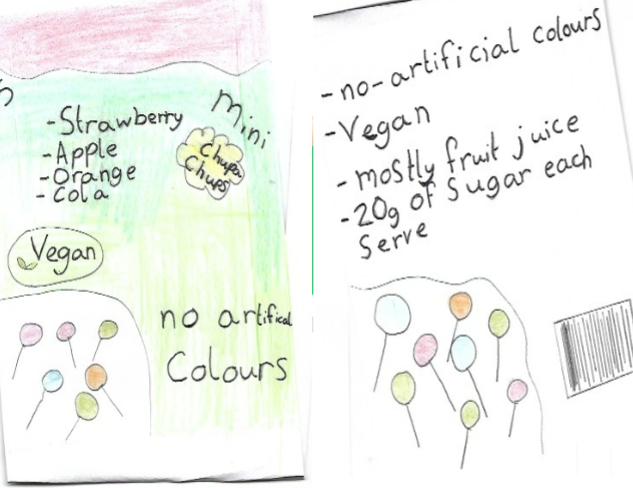 -Strawberry
-Apple
-Orange
-Cola
Mini
Chupa
Chups
Vegan
no artifical
Colours
-no-artificial colours
-Vegan
-mostly fruit juice
-20g of Sugar each
Serve